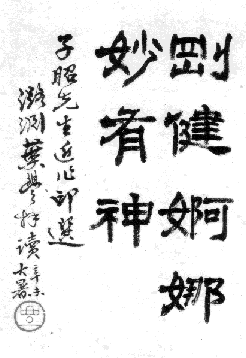 剛健婀娜
妙有神
子昭先生近作印選
潞渊葉
拜讀
辛未
大暑